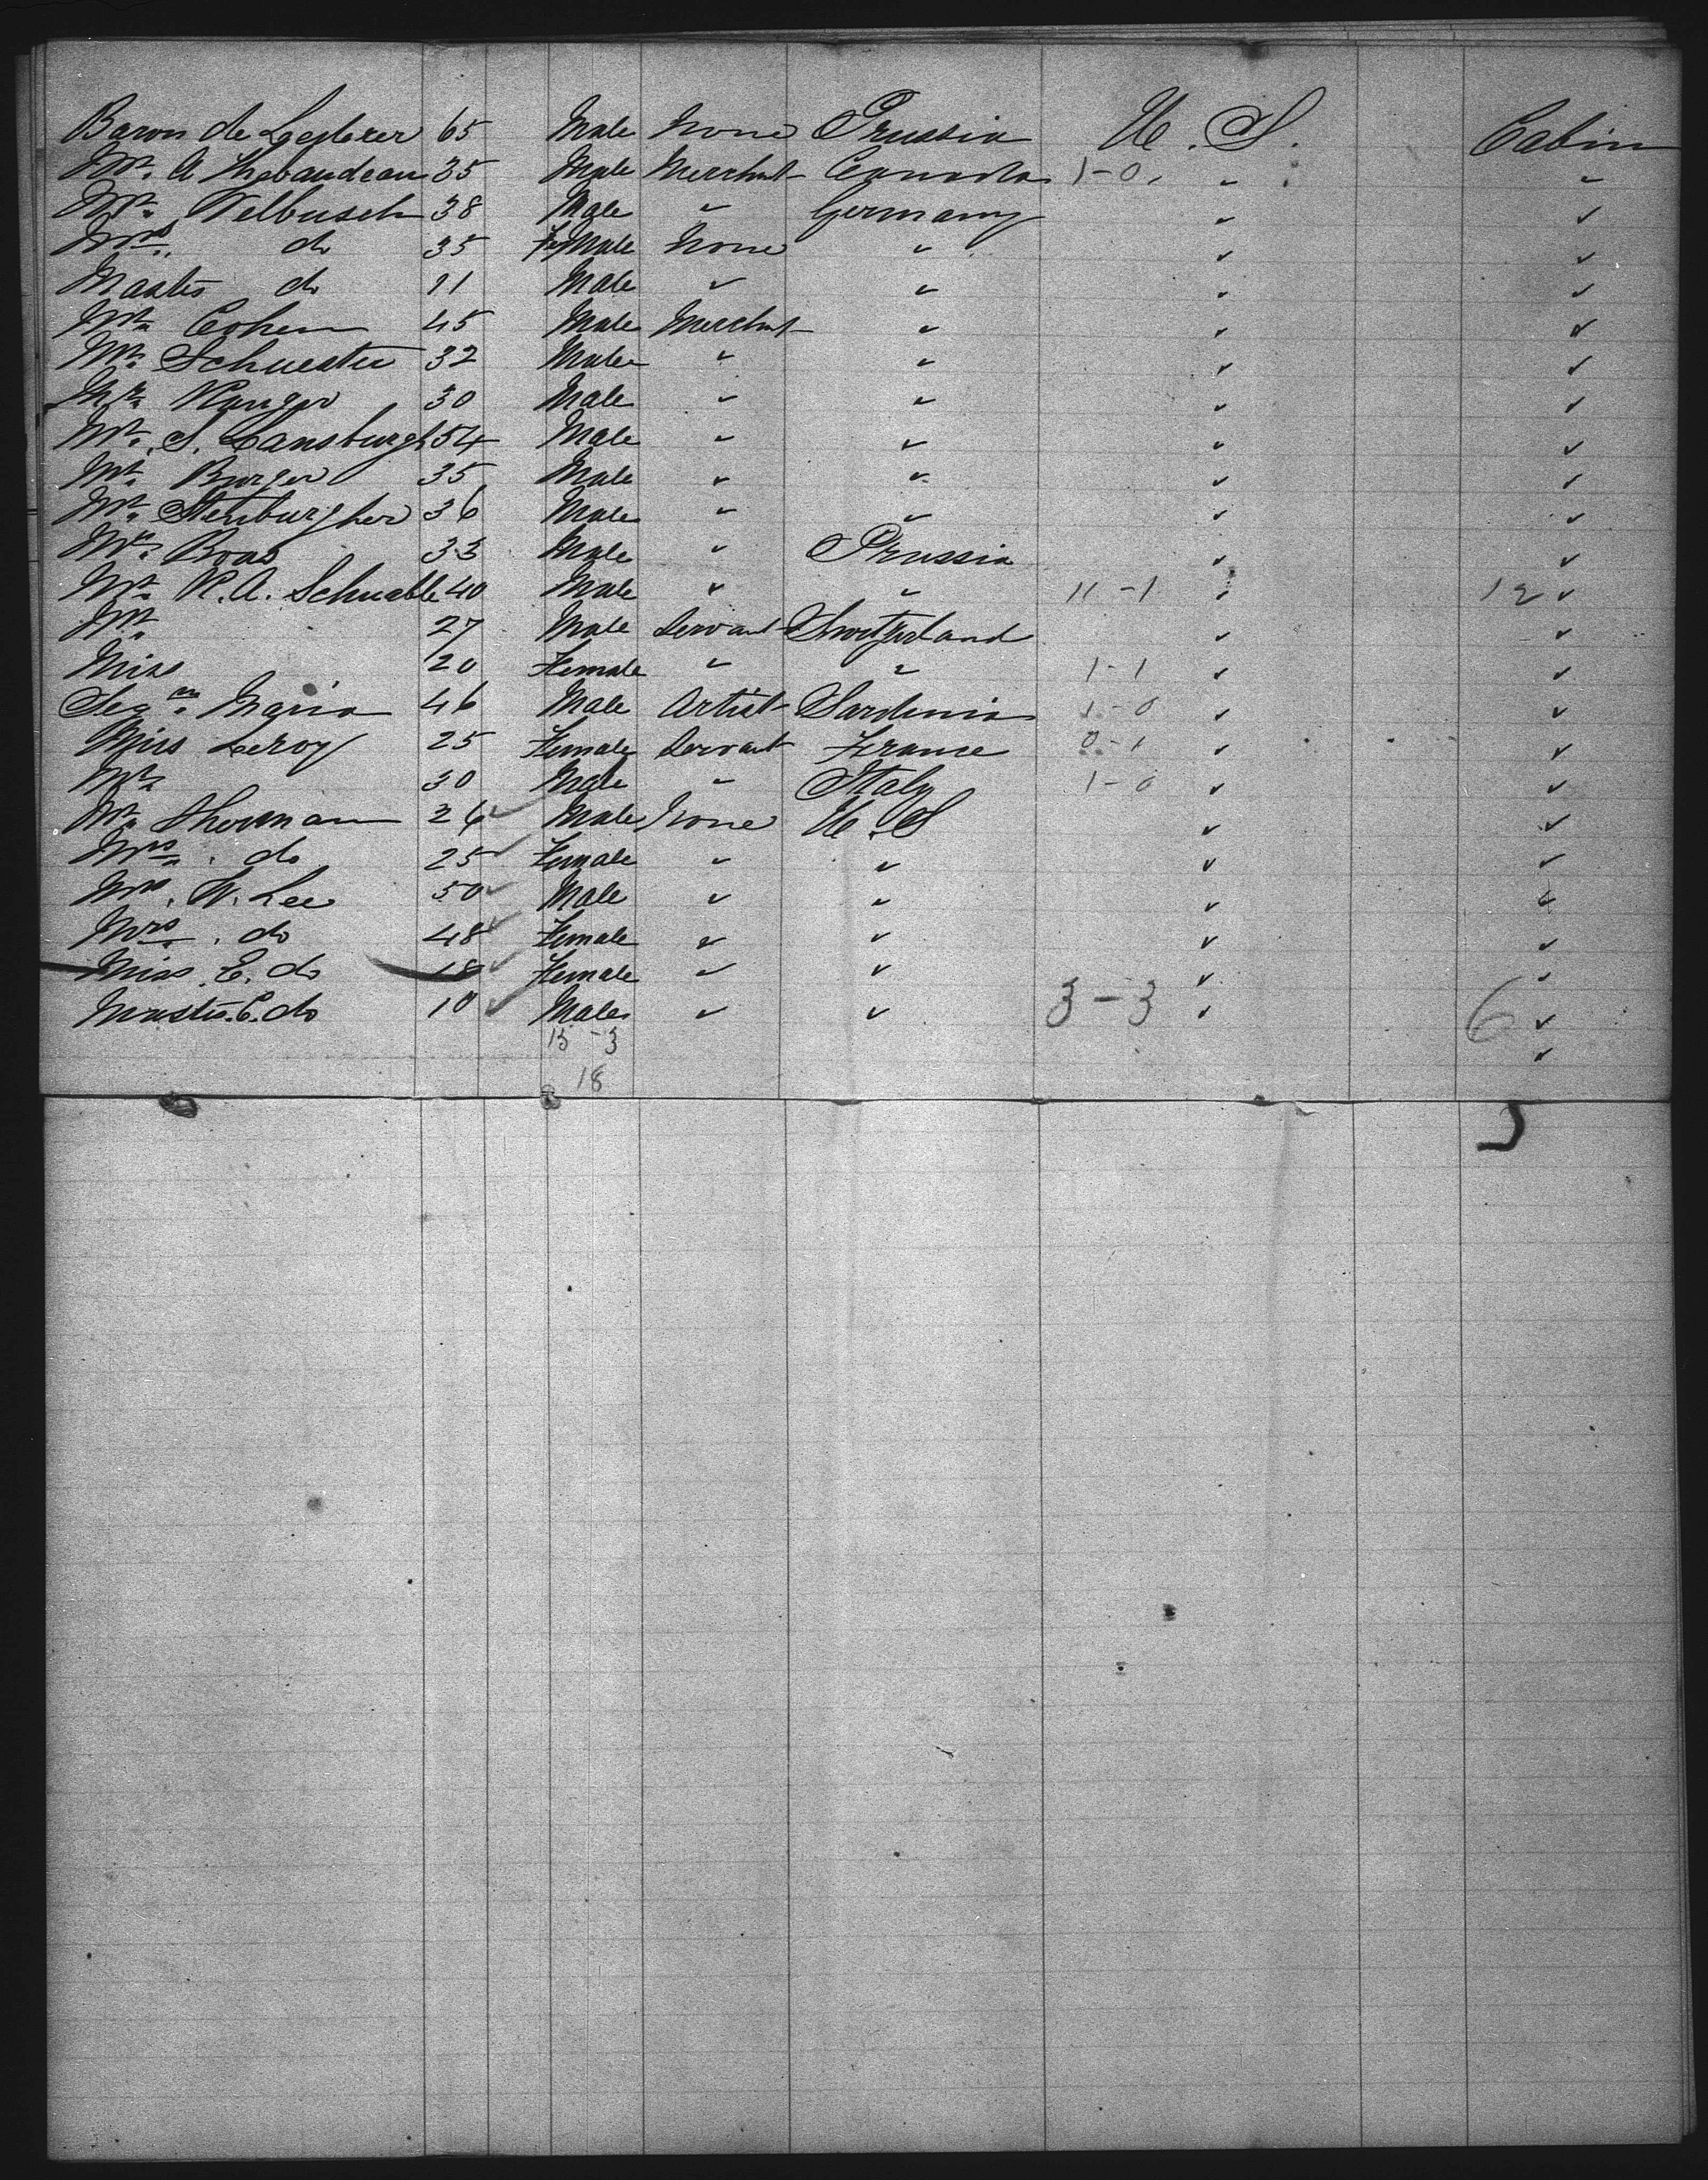 Baron de 65 Male None Prussia U. S. Cabin
Mr. A Thebaudeau 35 Male Merchant Canada 1-0 " "
Mr. Velbusch 38 Male " Germany " "
Mrs. do 35 Female None " " "
Master do 11 Male " " " "
Mr. Cohen 45 Male Merchant " " "
Mr. Schuester 32 Male " " " "
Mr. Runger 30 Male " " " "
Mr. S. Lansburgh 54 Male " " " "
Mr. Burger 35 Male " " " "
Mr. Stenburgher 36 Male " " " "
Mr. Boas 33 Male " Prussia " "
Mr. R. A. Schuable 40 Male " " 11-1 " 12 "
Mr. 27 Male Servant Switzerland " "
Miss 20 Female " " 1-1 " "
Maria 46 Male Artist Sardinia 1-0 " "
Miss Leroy 25 Female Servant France 0-1 " "
Mr. 30 Male " Italy 1-0 " "
Mr. Sherman 26 Male None U. S " "
Mrs. do 25 Female " " " "
Mr. W. Lee 50 Male " " " "
Mrs. do 48 Female " " " "
Miss E. do 18 Female " " " "
Master C. do 10 Male " " 3-3 " 6 "
15-3 "
18